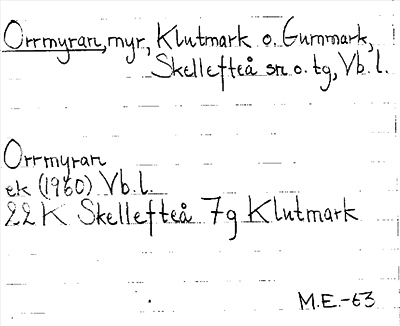 Orrmyran, myr, Klutmark o. Gummark,
Skellefteå sn o. tg, Vb. l.
Orrmyran
ek (1960) Vb. l.
22 K Skellefteå 7g Klutmark
M.E.-63